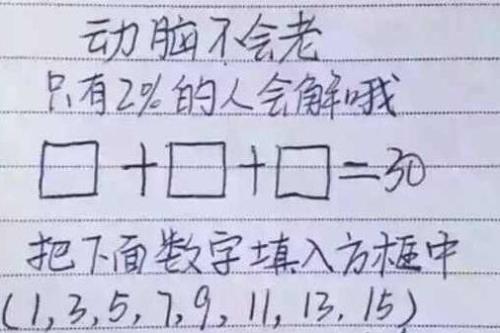 动脑不会老
只有2%的人会解哦
□+□+□=30
把下面数字填入方框中
(1,3,5,7,9,11,13,15)